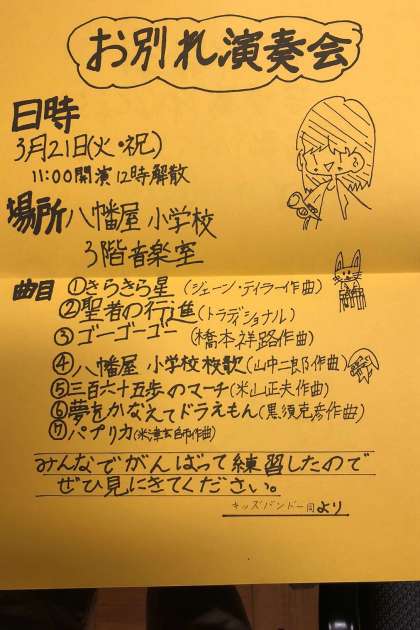 お別れ演奏会
日時
3月21日(火・祝)
11:00開演 12時解散
場所 八幡屋 小学校
3階音楽室
曲目 ①きらきら星 (ジェーン・テイラー作曲)
②聖者の行進(トラディショナル)
③ゴーゴーゴー (橋本祥路作曲)
④八幡屋 小学校 校歌(山中二郎作曲)
⑤三百六十五歩のマーチ(米山正夫作曲)
⑥夢をかなえてドラえもん(黒須克彦作曲)
⑦パプリカ(米津玄師作曲)
みんなでがんばって練習したので
ぜひ見にきてください。
キッズバンド一同より